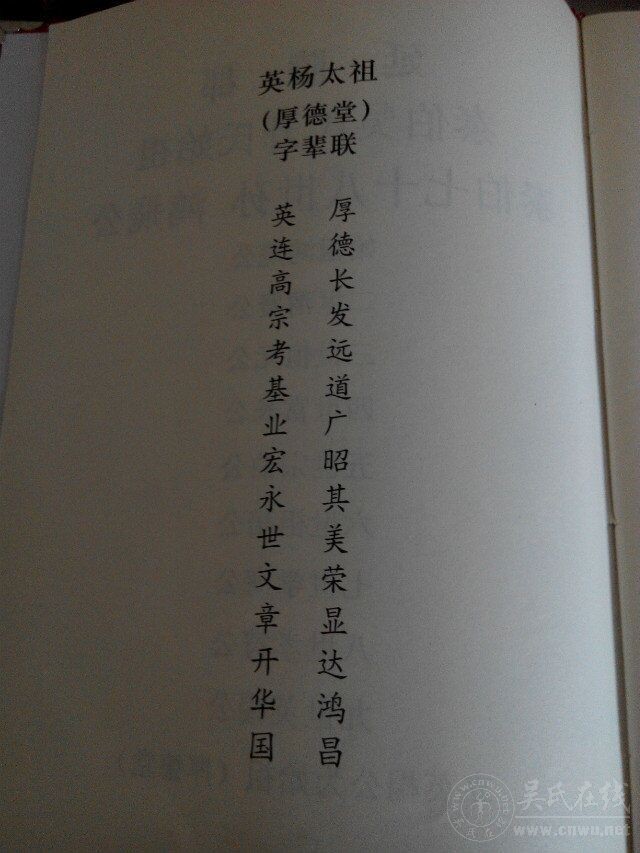 英杨太祖
（厚德堂）
字辈联
厚德长发远道广昭其美荣显达鸿昌
英连高宗考基业宏永世文章开华国
吴氏在线
www.cnwu.net